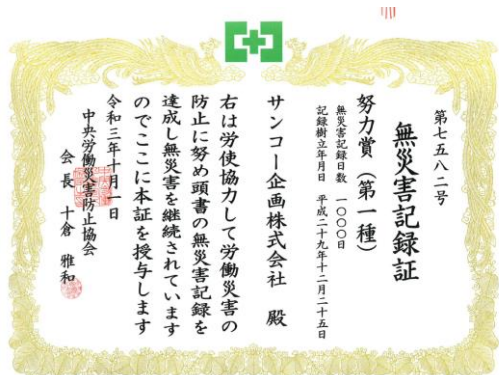 第七五八二号
無災害記録証
努力賞（第一種）
無災害記録日数 一〇〇〇日
記録樹立年月日 平成二十九年十二月二十五日
サンコー企画株式会社 殿
右は労使協力して労働災害の
防止に努め頭書の無災害記録を
達成し無災害を継続されています
のでここに本証を授与します
令和三年十月一日
中央労働災害防止協会
会長 十倉 雅和